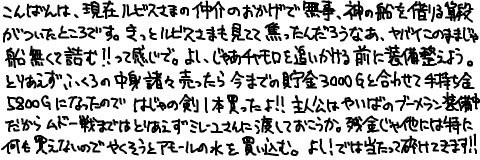 こんばんは、現在ルビスさまの仲介のおかげで無事、神の船を借りる算段
がついたところです。きっとルビスさまも見てて焦ったんだろうなあ、ヤバイこのままじゃ
船無くて詰む!!って感じで。よし、じゃあチャモロを追いかける前に装備整えよう。
とりあえずふくろの中身諸々売ったら今までの貯金3000Gと合わせて手持ち金
5800Gになったので はじゃの剣1本買ったよ!!主人公はやいばのブーメラン装備中
だからムドー戦まではとりあえずミレーユさんに渡しておこうか。残金じゃ他には特に
何も買えないのでやくそうとアモールの水を買い込む。よし!では当たって砕けてきます!!